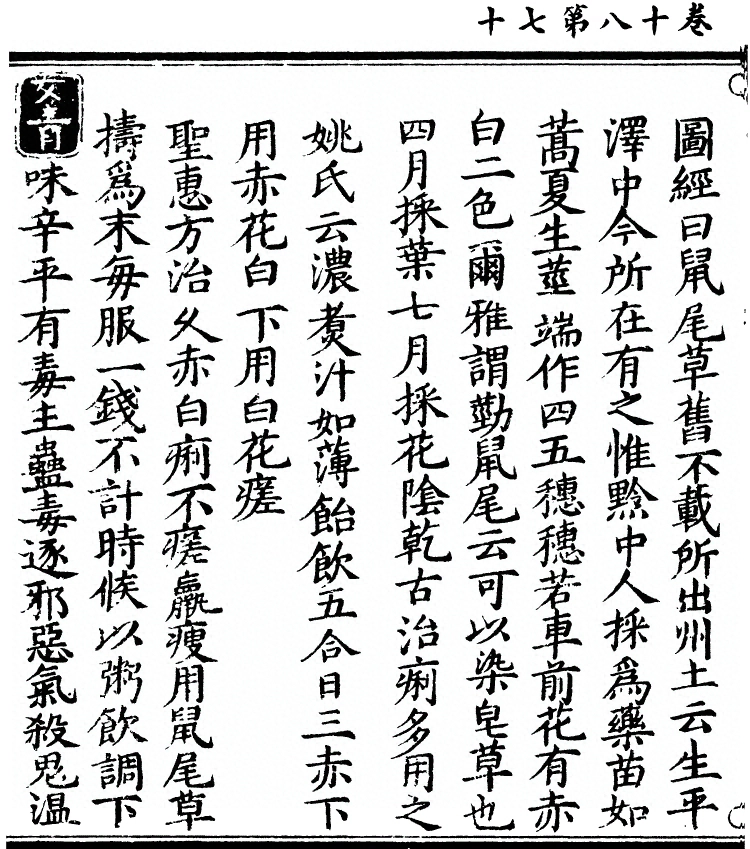 卷十八第七十
圖經曰鼠尾草舊不載所出州土云生平
澤中今所在有之惟黔中人採為藥苗如
蒿夏生莖端作四五穗穗若車前花有赤
白二色爾雅謂葝鼠尾云可以染皂草也
四月採葉七月採花陰乾古治痢多用之
姚氏云濃煑汁如薄飴飲五合日三赤下
用赤花白下用白花瘥
聖惠方治久赤白痢不瘥羸瘦用鼠尾草
擣為末每服一錢不計時候以粥飲調下
女青味辛平有毒主蠱毒逐邪惡氣殺鬼溫